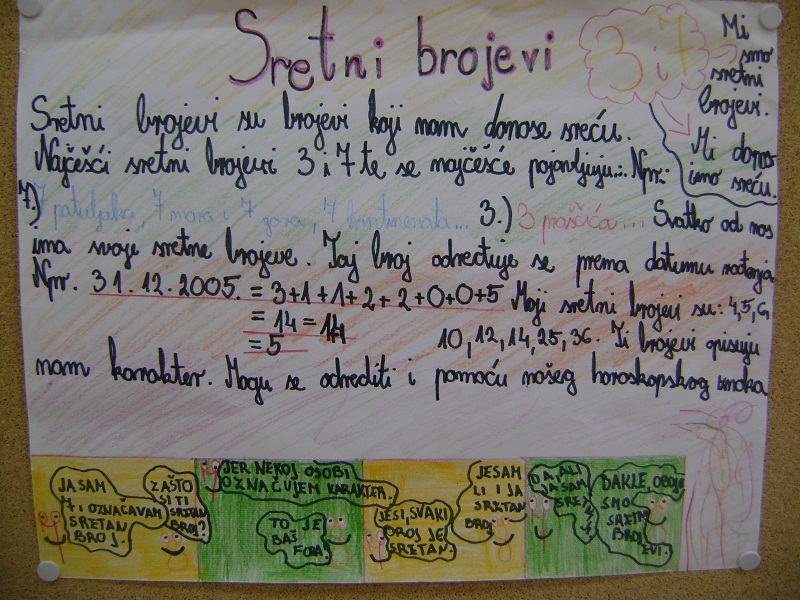 Sretni brojevi
3 i 7
Mi
smo
sretni
brojevi.
Mi donos
imo sreću.
Sretni brojevi su brojevi koji nam donose sreću.
Najčešći sretni brojevi 3 i 7 te se najčešće pojavljuju... Npr.:
7.) 7 patuljaka, 7 mora i 7 gora, 7 kontinenata... 3.) 3 praščića... Svatko od nas
ima svoje sretne brojeve. Taj broj određuje se prema datumu rođenja
Npr. 31.12.2005. = 3+1+1+2+2+0+0+5 Moji sretni brojevi su: 4,5,6,
= 14 = 14
= 5
10, 12, 14, 25, 36. Ti brojevi opisuju
nam karakter. Mogu se odrediti i pomoću našeg horoskopskog znaka
JA SAM
7 I OZNAČAVAM
SRETAN
BROJ.
ZAŠTO
SI TI
SRETAN
BROJ?
JER NEKOJ OSOBI
OZNAČUJEM KARAKTER.
TO JE
BAŠ
FORA!
JESAM
LI I JA
SRETAN
BROJ
JESI, SVAKI
BROJ JE
SRETAN.
DA, ALI
JA SAM
DAKLE, OBOJE
SMO
SRETNI
BROJ
EVI.